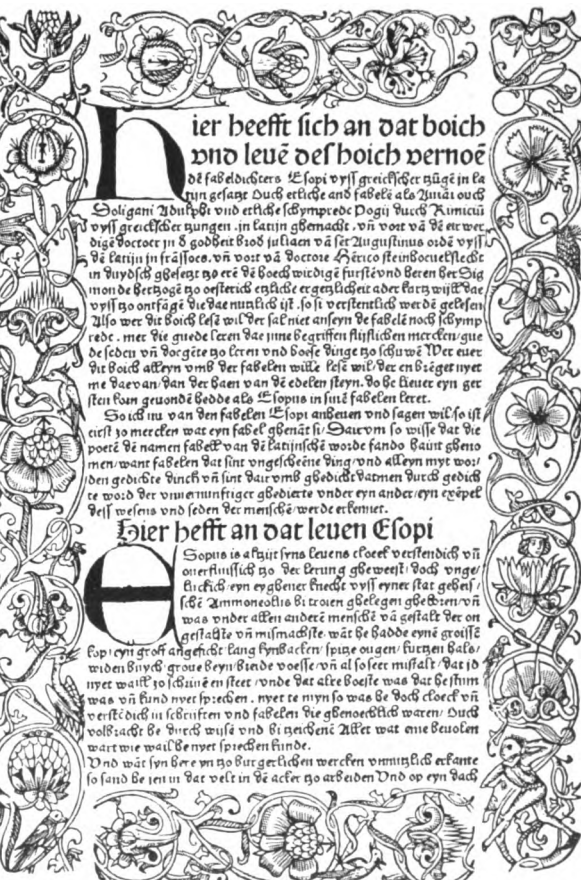 hier heefft sich an dat boich
vnd levē des hoich vernoē
dē fabeldichters Esopi vyss greickscher tzūgē in la
tijn gesatze Ouch etliche and fabelē als Auiāi ouch
Doligani Adulphi vnd etliche schymprede Pogij durch Rimiciū
vyss greickscher tzungen in latijn ghemacht vñ vort vā dē
de latijn in frāssoes vñ vort vā doctore Hērico steinhoeuel slecht
in duydsch ghesetzt zo erē dē hoech wirdige furstē vnd heren her Sig
monde hertzogē zo oesterich
vysszo ontfāgē die dae nutzlich ist so si verstentlich werdē gelesen
Also wer dit boich lesē wil der sal niet anseyn de fabelē noch schymp
rede mer die guede leren dae inne begriffen flijslichen mercken gue
de seden vñ doegēte zo leren vnd boese dinge zo schuwē Wer euer
dit boich alleyn vmb der fabelen wille lesē wil der en brēget nyet
me daevan dan der haen van dē edelen steyn do he lieuer eyn ger
sten korn geuondē hedde als Esopus in sinē fabelen leret
So ich nu van den fabelen Esopi anheuen vnd sagen wil so ist
eirst zo mercken wat eyn fabel ghenāt si Dairvm so wisse dat die
poetē dē namen fabell van dē latijnschē worde fando haint gheno
men want fabelen dat sint vngescheene ding vnd alleyn myt wor
den gedichte dinch vñ sint dair vmb ghedicht datmen durch gedich
te word der vnuernunftiger ghedierte vnder eyn ander eyn exēpel
dess wesens vnd seden der menschē werde erkennet.
Hier hefft an dat leuen Esopi
ESopus is altzijt syns leuens cloeck verstendich vñ
ouerflussich zo der lerung gheweest doch vnge
luckich eyn eyghener knecht vyss eyner stat geheis
schē Ammoneolus bi troien ghelegen ghebören vñ
was vnder allen anderē menschē vā gestalt der on
gestaltste vñ mismachste wāt he hadde eynē groissē
kop eyn groff angesicht lang kynbacken spitze ougen kurtzen hals
widen buych groue beyn breide voesse vñ al so seer mistalt dat id
nyet waill zo schriuē en steet vnde dat alre boeste was dat he stum
was vñ kund nyet sprechen nyet te myn so was he doch cloeck vñ
verstēdich in schriften vnd fabelen die ghenoechlich waren Ouch
volbracht he durch wijse vnd bizeichenē Allet wat eme beuolen
wart wie wail he nyet sprechen kunde.
Vnd wāt syn here yn zo burgerlichen wercken vnnutzlich erkante
so sand he in dat velt in dē acker zo arbeiden Vnd op eyn dach